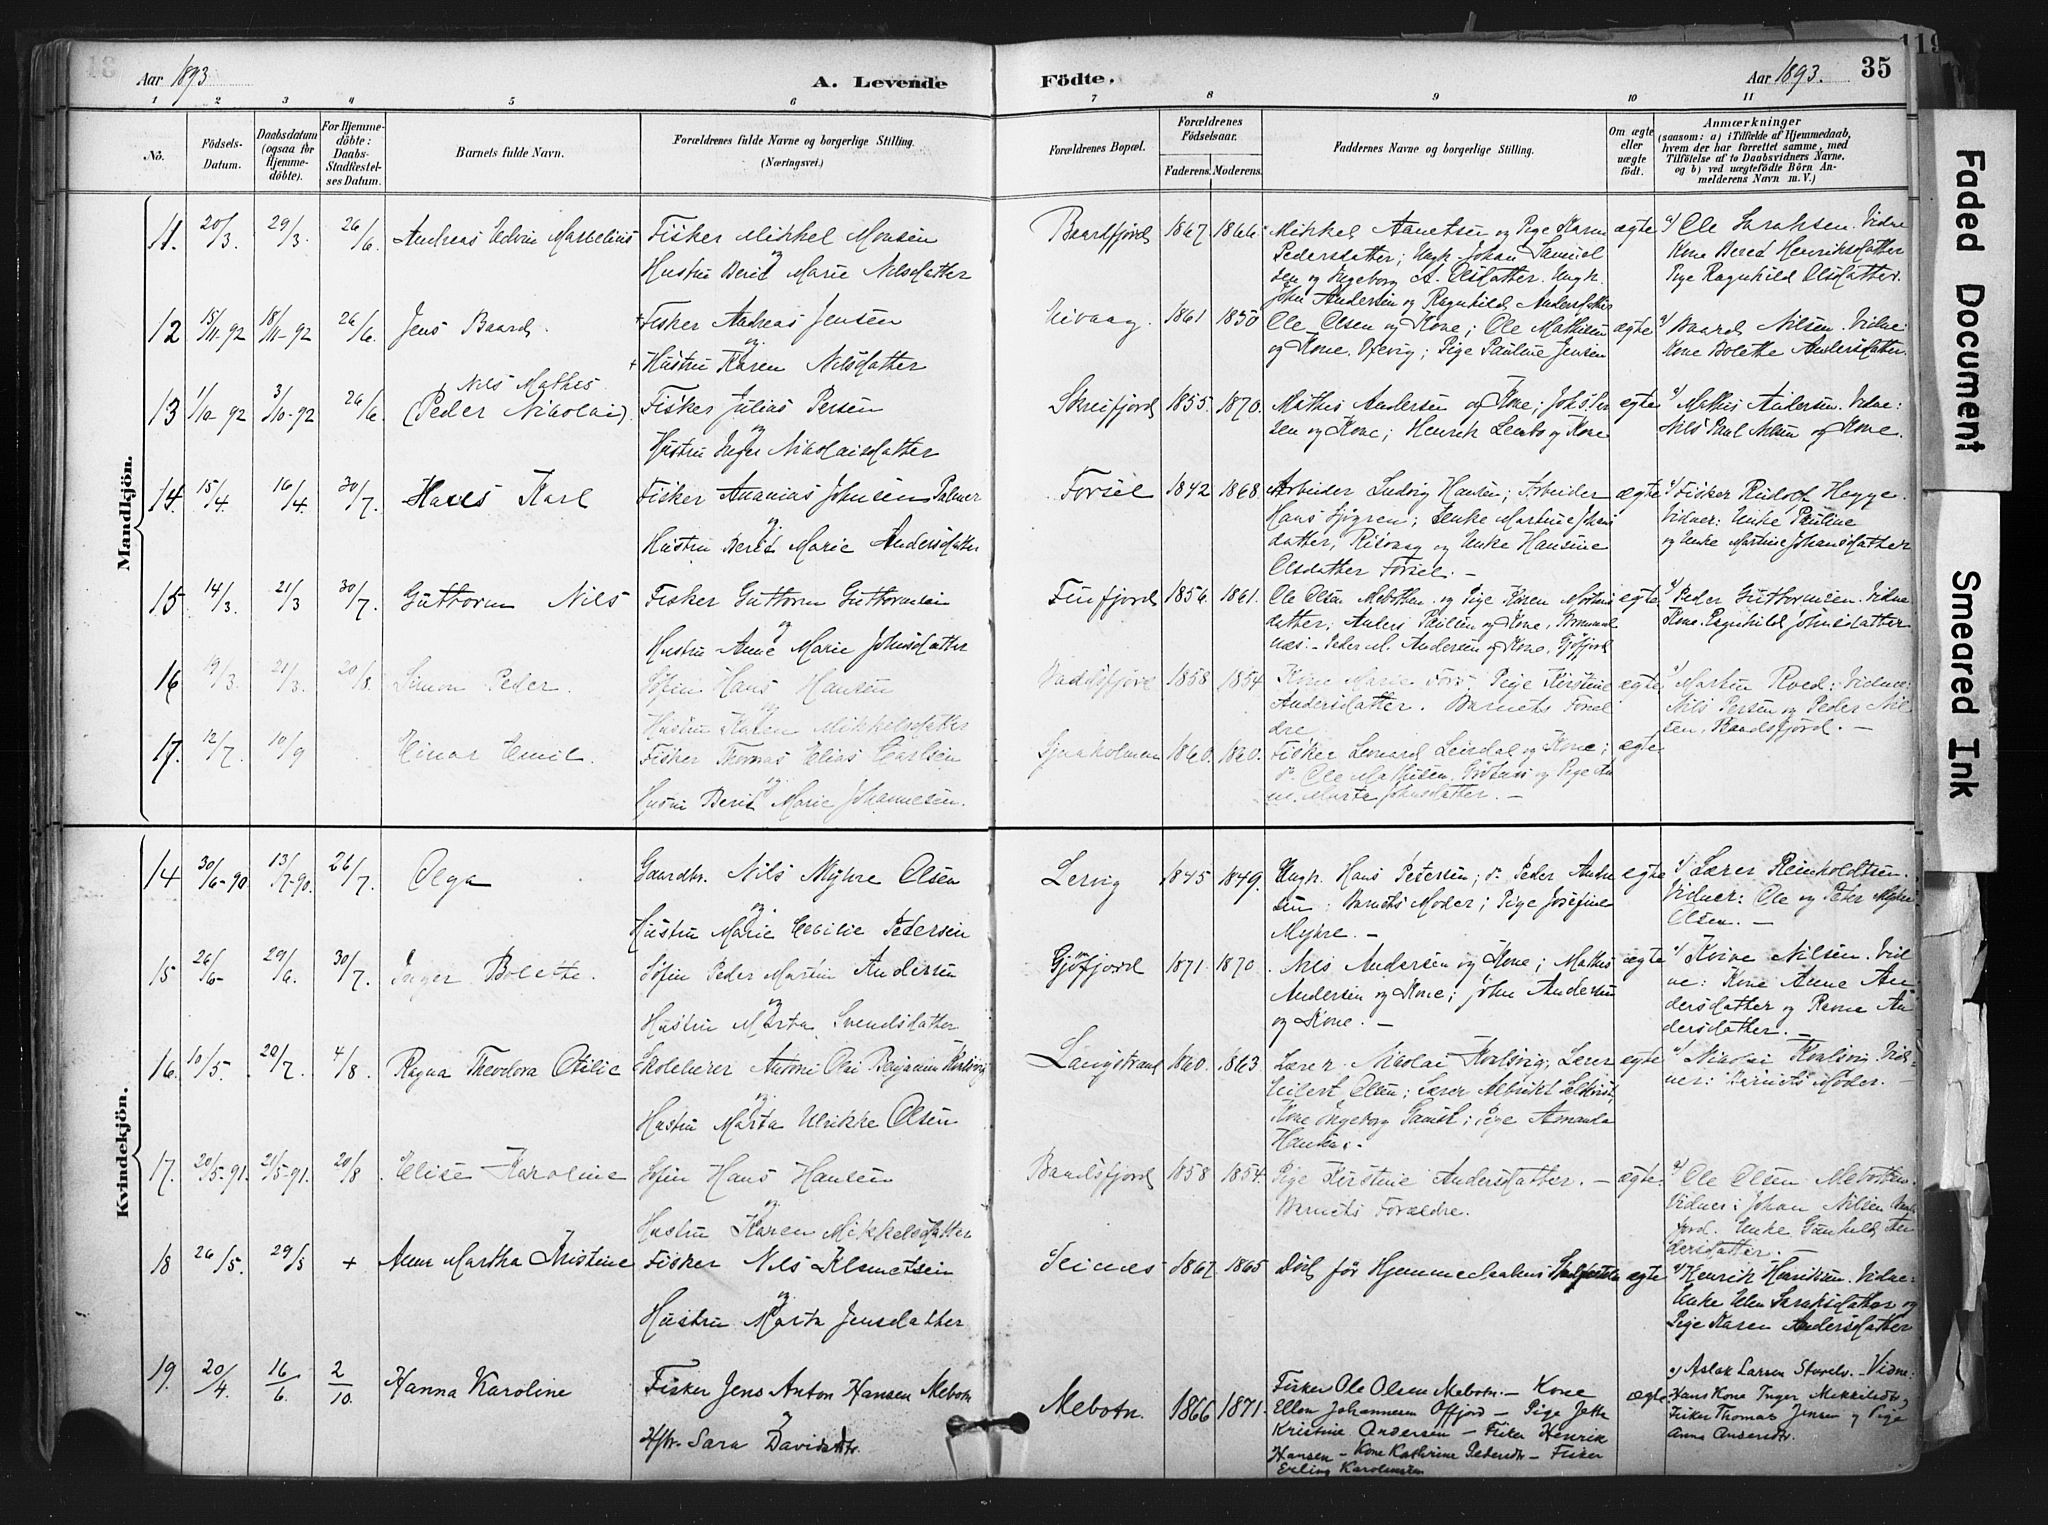 Aar 1893. A. Levende
Födte. Aar 1893. 35
1 2 3 4 5 6
7 8 9 10 11
No. Födsels-Datum. Daabsdatum (ogsaa for Hjemmedöbte). For Hjemmedöbte: Daabs-Stadfestelses Datum. Barnets fulde Navn. Forældrenes fulde Navne og borgerlige Stilling. (Næringsvei.)
Forældrenes Bopæl. Forældrenes Födselsaar. Faderens. Moderens. Faddernes Navne og borgerlige Stilling. Om ægte eller uægte födt. Anmærkninger (saasom: a) i Tilfælde af Hjemmedaab, hvem der har forrettet samme, med Tilföielse af to Daabsvidners Navne, og b) ved uægtefödte Börn Anmelderens Navn m. V.)
Mandkjön.
11. 20/3. 29/3. 26/6. Andreas Edvin Marselius Fisker Mikkel Monsen
og
Hustru Berit Marie Nilsdatter
Baardfjord 1867 1866 Mikkel Aanetsen og Pige Karen
Pedersdatter; Ungk. Johan Samuel
sen og Ingeborg A. Olsdatter. Ungk.
John Andersen og Ragnhild Andersdatter
ægte a) Ole Sarahsen. Vidne
Kone Bered Henriksdatter
Pige Ragnhild Olsdatter.
12 15/11-92 18/11-92 26/6. Jens Baard. + Fisker Andreas Jensen
og
+ Hustru Karen Nilsdatter
1861 1850 Ole Olsen og Kone; Ole Mathisen
og Kone. Oxevig; Pige Pauline Jensen
ægte a) Baard Nilsen. Vidne:
Kone Bolette Andersdatter.
13 1/10-92 3/10-92 26/6 Nils Mathis
(Peder Nikolai). Fisker Julius Persen
og
Hustru Inger Nikolaisdatter
Skreifjord 1855. 1870. Mathis Andersen og Kone; Johs. Per
sen og Kone; Henrik og Kone
ægte a) Mathis Andersen. Vidne:
Nils Paul Nilsen og Kone.
14. 15/4. 16/4. 30/7. Hans Karl Fisker Ananias Johnsen Palmer
og
Hustru Berit Marie Andersdatter
Forsøl 1842 1868. Arbeider Ludvig Hansen; Arbeider
Hans Sjøgren; Enke Martine Johans
datter, Ripvaag og Enke Hansine
Olsdatter Forsøl. -
ægte a) Fisker Rudolf Hegge.
Vidner: Enke Pauline
og Enke Martine Johansdatter
15 14/3. 21/3 30/7. Guttorm Nils Fisker Guttorm Guttormsen
og
Hustru Anne Marie Johnsdatter
Finfjord 1856. 1861. Ole Olsen Mebotten og Pige Karen
datter; Anders Nilsen og Kone,
næs. - Peder M. Andersen og Kone, Gjøfjord
ægte a) Peder Guttormsen. Vidne
Kone Ragnhild Johnsdatter
16 19/3. 21/3. 20/8. Simon Peder. Søfin Hans Hansen
og
Hustru Karen Mikkelsdatter
1858 1854 Kone Marie Pige Kirstine
Andersdatter. Barnets Foræl
dre
ægte a) Martin Roed: Vidne:
Nils Persen og Peder Nil
sen, Baadsfjord. -
17. 12/7. 10/9 Einar Emil. Fisker Thomas Elias Carlsen
og
Hustru Berit Marie Johannesen.
Sjaaholmen 1860. 1860. Fisker Leonard Leirdal og Kone;
do. Ole Mathisen. og Pige An
ne Marta Johnsdatter. -
ægte
Kvindekjön.
14 30/6-90 13/7-90. 26/7. Olga Gaardbr. Nils Myhre Olsen
og
Hustru Marie Cecilie Pedersen
Lervig 1845 1849. Ungk. Hans Petersen; do. Peder Andre
sen; Barnets Moder; Pige Josefine
Myhre. -
ægte a) Lærer Reinholdtsen.
Vidner: Ole og Peter Myhre
Olsen. -
15 26/6- 29/6. 30/7. Inger Bolette. Søfin Peder Martin Andersen
og
Hustru Marta Svendsdatter
Gjøfjord 1871. 1870 Nils Andersen og Kone; Mathis
Andersen og Kone; John Andersen
og Kone. -
ægte a) Kvive Nilsen. Vid
ne: Kone Anne An
dersdatter og Ravna An
dersdatter. -
16. 10/5. 20/7. 4/8. Ragna Theodora Otilie Skolelærer Antoni Olai Benjamin Kvalsvig
og
Hustru Marta Ulrikke Olsen
Langstrand 1860. 1863. Lærer Nikolai Kvalsvig; Lærer
Eilert Olsen; Lærer Albrikt
Kone Ingeborg; Pige Amanda
Hansen. -
ægte a) Nikolai Kvalsvig. Vid-
ner: Barnets Moder. -
17. 20/5-91. 21/5-91. 20/8 Elise Karoline Søfin Hans Hansen
og
Hustru Karen Mikkelsdatter
Baadsfjord 1858 1854. Pige Kirstine Andersdatter. -
Barnets Forældre.
ægte. a) Ole Olsen Mebotten.
Vidner: Johan Nilsen
fjord. Enke Gunhild An
dersdatter. -
18 26/5. 29/5 + Anne Martha Kristine Fisker Nils Klemetsen
og
Hustru Marta Jensdatter
Seines 1867. 1865 Død før Hjemmedaabens Stadfæstelse
ægte a) Henrik Henriksen. Vidne:
Enke Elen Sarahsdatter og
Pige Karen Andersdatter
19. 20/4. 16/6 2/10. Hanna Karoline Fisker Jens Anton Hansen Mebotn
og
Hstr. Sara Davidsdtr.
Mebotn. 1866 1871. Fisker Ole Olsen Mebotn. - Kone
Ellen Johannesen Offjord - Pige Jette
Kristine Andersen - Fisker Henrik
Hansen - Kone Kathrine Pedersdtr - Fisker
Erling Karolinsen
ægte a) Aslak Larsen Storelv. - Vidne:
Hans Kone Inger Mikkelsdtr,
Fisker Thomas Jensen og Pige
Anna Andersdtr.
Faded Document
Smeared Ink